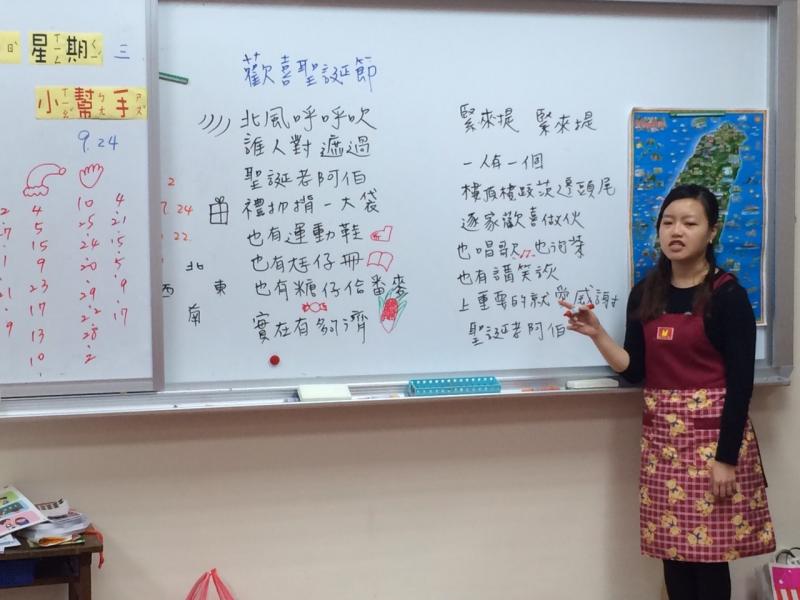 星期 三
小幫手
9.24
歡喜聖誕節
北風呼呼吹
誰人對遮過
聖誕老阿伯
禮物揹一大袋
也有運動鞋
也有尪仔冊
也有糖仔佮番麥
實在有夠濟
緊來提 緊來提
一人有一個
樓頂樓跤茨邊頭尾
逐家歡喜做伙
也唱歌 也泡茶
也有講笑詼
上重要的就愛感謝
聖誕老阿伯
北
西 東
南
4 10 4
5 25 21
15 24 15
9 20 5
23 29 9
17 22 17
13 28
10 2